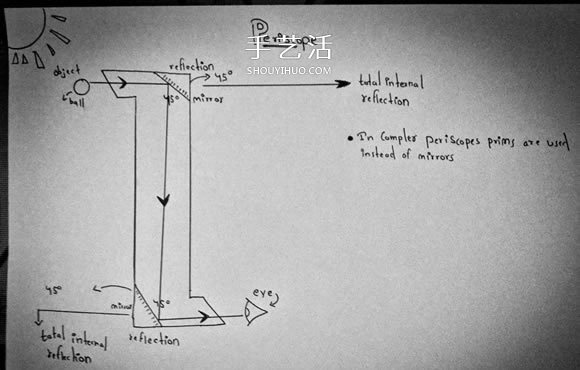 Periscope
手艺活
SHOUYIHUO.COM
object
ball
reflection
45°
45°
mirror
total internal
reflection
• In Compler periscopes prims are used
instead of mirrors
45°
mirror
45°
eye
total internal
reflection
reflection